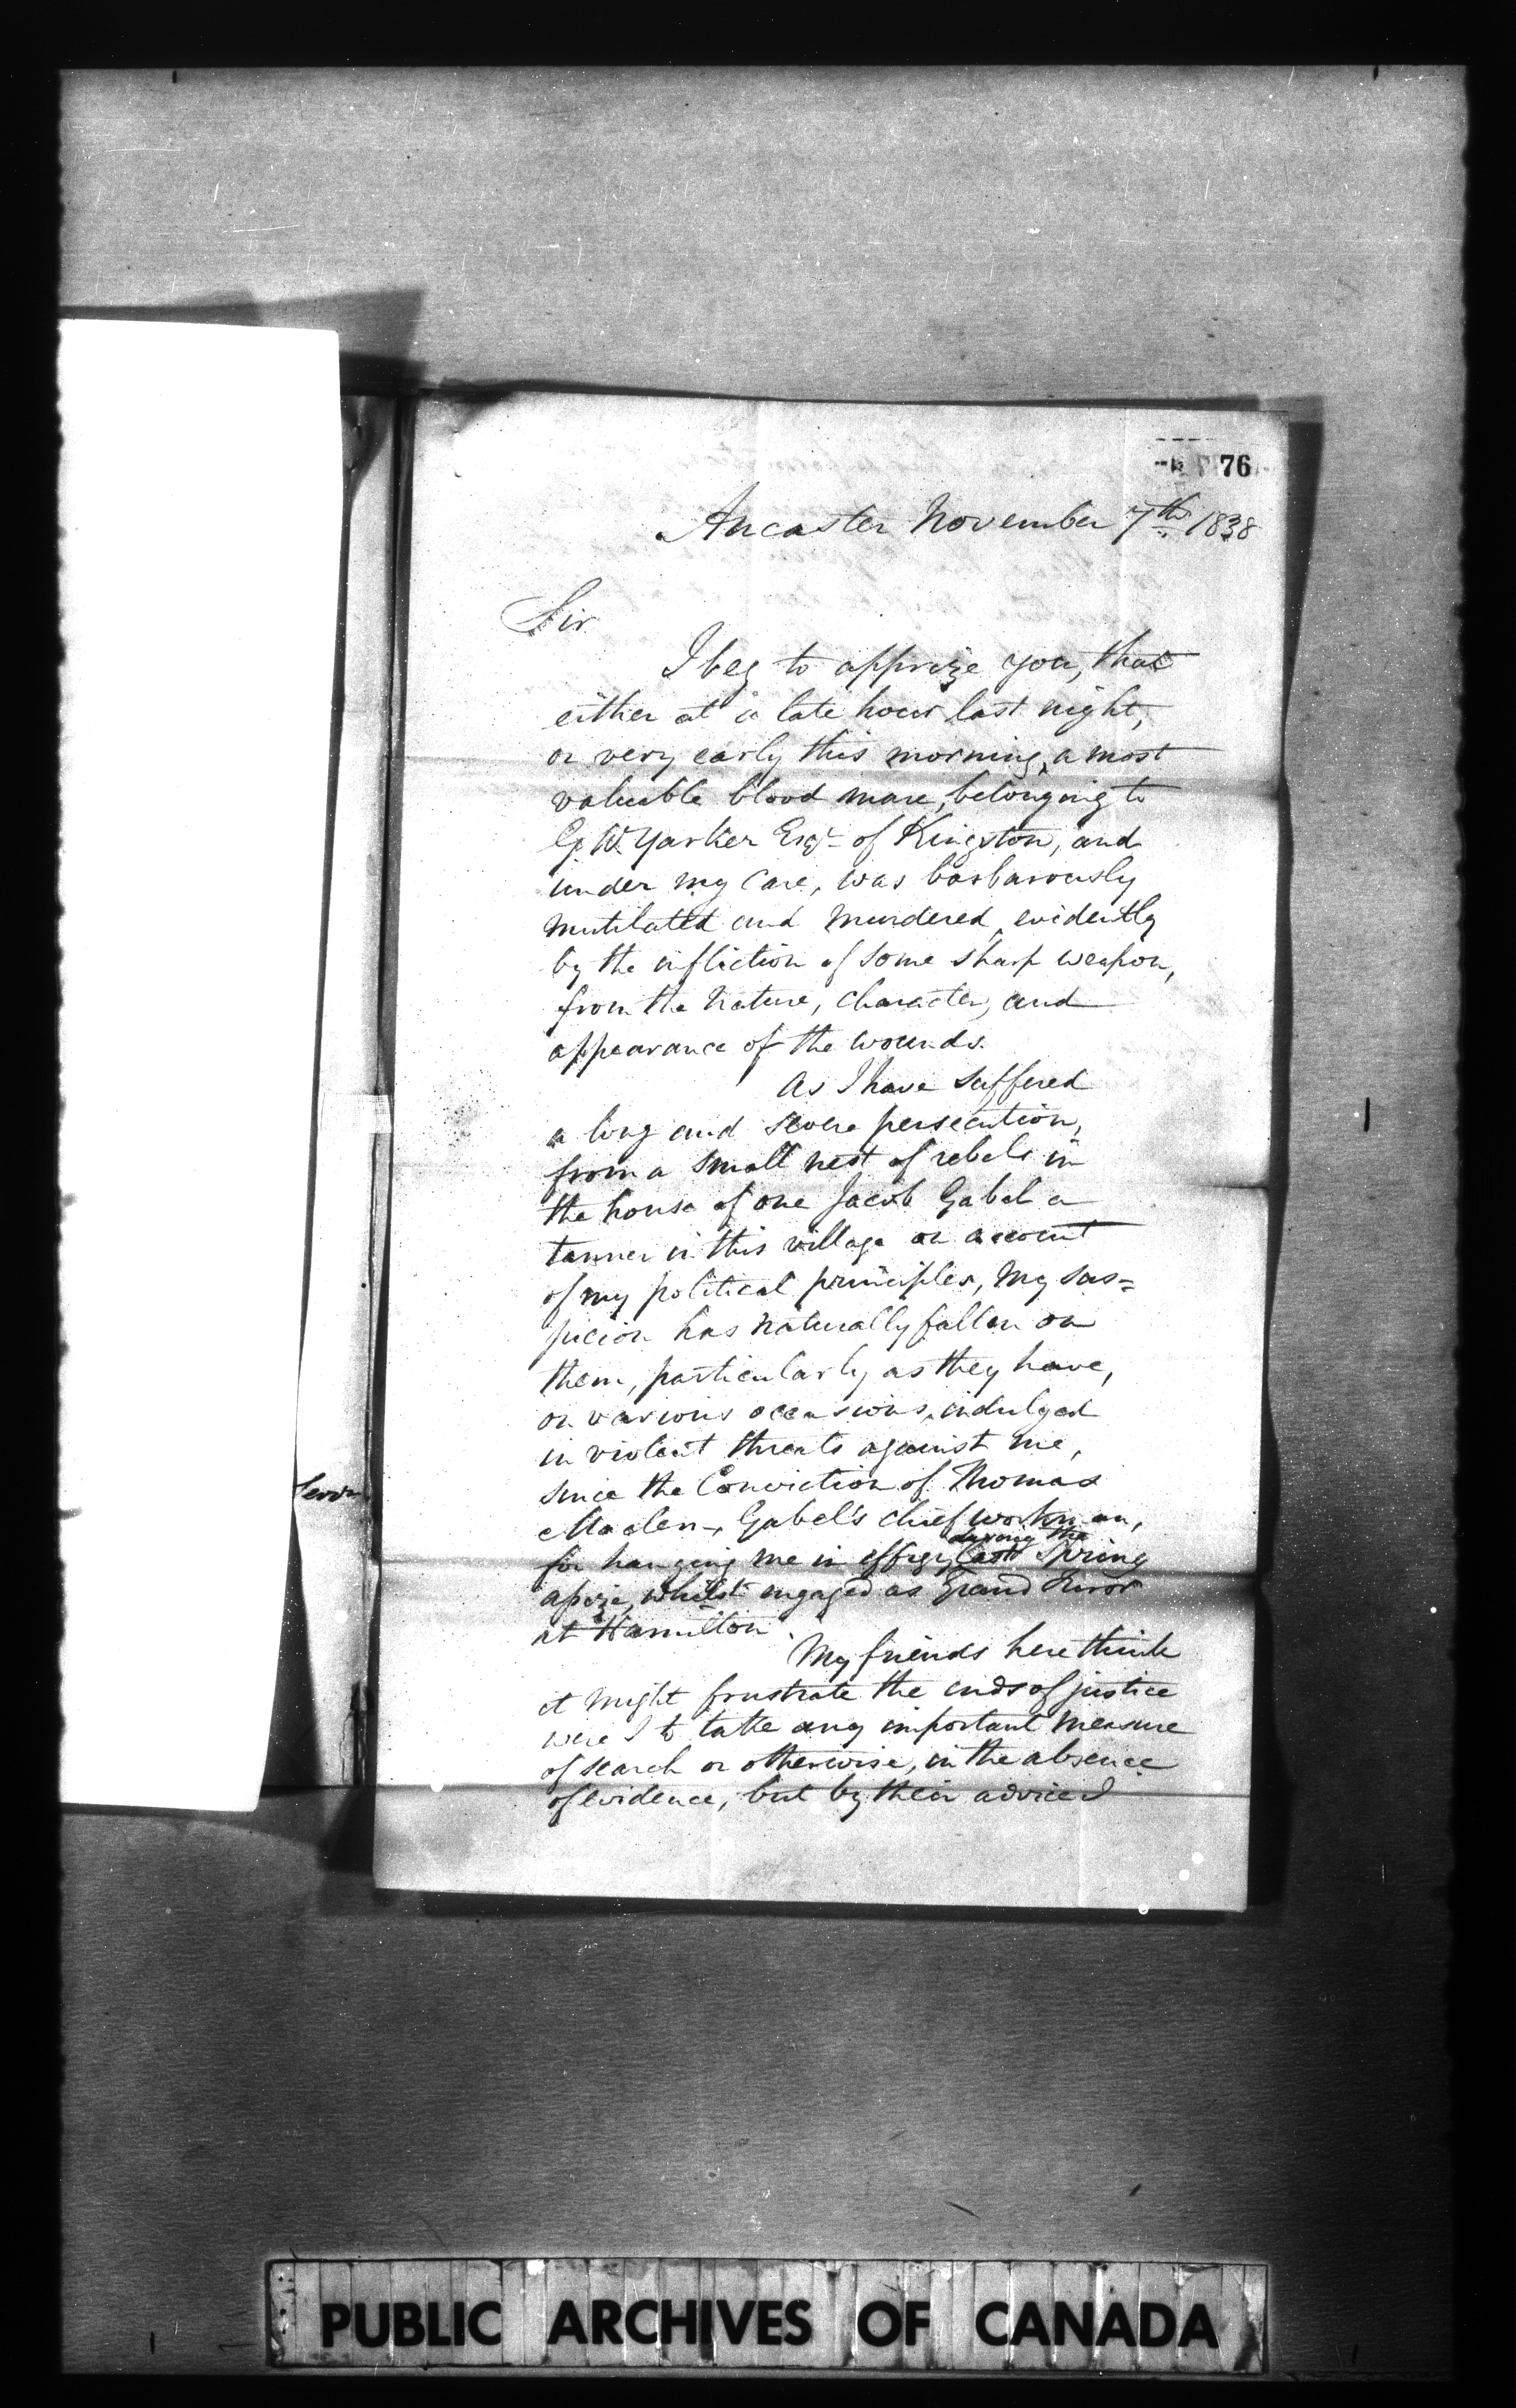 76
Ancaster November 7th 1838
Sir
I beg to apprize you, that
either at a late hour last night,
or very early this morning, a most
valuable blood mare, belonging to
G. W. Yarker Esqr of Kingston, and
under my care, was barbarously
mutilated and murdered, evidently
by the infliction of some sharp weapon,
from the nature, character, and
appearance of the wounds.
As I have suffered
a long and severe persecution,
from a small nest of rebels in
the house of one Jacob Gabel a
tanner in this village on account
of my political principles, my sus=
picion has naturally fallen on
them, particularly as they have,
on various occasions, indulged
in violent threats against me,
since the Conviction of Thomas
Gabel's chief workman,
during the
for hanging me in effigy, last Spring
assize, whilst engaged as Grand Juror
at Hamilton.
My friends here think
it might frustrate the ends of justice
were I to take any important measure
of search or otherwise, in the absence
of evidence, but by their advice I
PUBLIC ARCHIVES OF CANADA